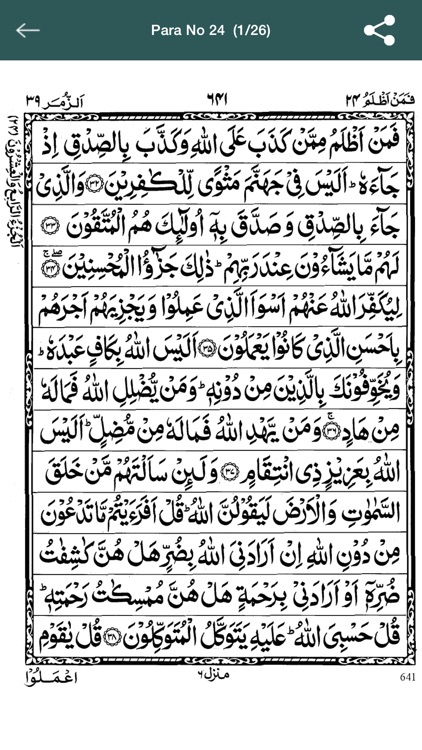 Para No 24 (1/26)
فَمَنْ اَظْلَمُ ٢٤ ٦٤١ اَلزُّمَر ٣٩
اَلْجُزْءُ الرَّابِعُ وَالْعِشْرُوْنَ (٢٤)
فَمَنْ اَظْلَمُ مِمَّنْ كَذَبَ عَلَى اللّٰهِ وَكَذَّبَ بِالصِّدْقِ اِذْ
جَآءَهٗ ؕ اَلَيْسَ فِيْ جَهَنَّمَ مَثْوًى لِّلْكٰفِرِيْنَ ﴿٣٢﴾ وَالَّذِيْ
جَآءَ بِالصِّدْقِ وَ صَدَّقَ بِهٖٓ اُولٰٓئِكَ هُمُ الْمُتَّقُوْنَ ﴿٣٣﴾
لَهُمْ مَّا يَشَآءُوْنَ عِنْدَ رَبِّهِمْ ؕ ذٰلِكَ جَزٰٓؤُا الْمُحْسِنِيْنَ ﴿٣٤﴾
لِيُكَفِّرَ اللّٰهُ عَنْهُمْ اَسْوَاَ الَّذِيْ عَمِلُوْا وَيَجْزِيَهُمْ اَجْرَهُمْ
بِاَحْسَنِ الَّذِيْ كَانُوْا يَعْمَلُوْنَ ﴿٣٥﴾ اَلَيْسَ اللّٰهُ بِكَافٍ عَبْدَهٗ ؕ
وَيُخَوِّفُوْنَكَ بِالَّذِيْنَ مِنْ دُوْنِهٖ ؕ وَمَنْ يُّضْلِلِ اللّٰهُ فَمَا لَهٗ
مِنْ هَادٍ ﴿٣٦﴾ وَمَنْ يَّهْدِ اللّٰهُ فَمَا لَهٗ مِنْ مُّضِلٍّ ؕ اَلَيْسَ
اللّٰهُ بِعَزِيْزٍ ذِي انْتِقَامٍ ﴿٣٧﴾ وَلَئِنْ سَاَلْتَهُمْ مَّنْ خَلَقَ
السَّمٰوٰتِ وَالْاَرْضَ لَيَقُوْلُنَّ اللّٰهُ ؕ قُلْ اَفَرَءَيْتُمْ مَّا تَدْعُوْنَ
مِنْ دُوْنِ اللّٰهِ اِنْ اَرَادَنِيَ اللّٰهُ بِضُرٍّ هَلْ هُنَّ كٰشِفٰتُ
ضُرِّهٖٓ اَوْ اَرَادَنِيْ بِرَحْمَةٍ هَلْ هُنَّ مُمْسِكٰتُ رَحْمَتِهٖ ؕ
قُلْ حَسْبِيَ اللّٰهُ ؕ عَلَيْهِ يَتَوَكَّلُ الْمُتَوَكِّلُوْنَ ﴿٣٨﴾ قُلْ يٰقَوْمِ
اعْمَلُوْا منزل ٦ 641